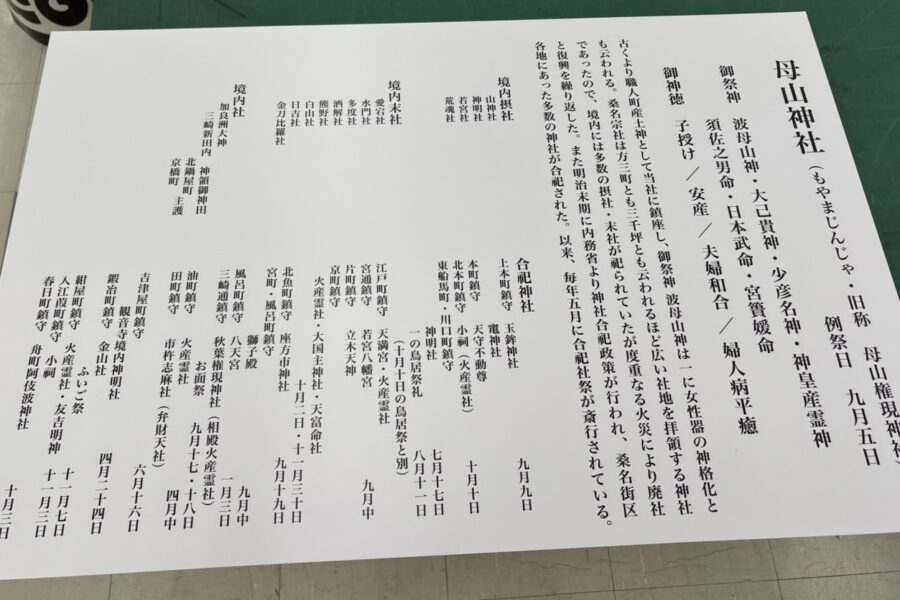 母山神社（もやまじんじゃ・旧称　母山権現神社）
例祭日　九月五日
御祭神　波母山神・大己貴神・少彦名神・神皇産霊神
須佐之男命・日本武命・宮簀媛命
御神徳　子授け／安産／夫婦和合／婦人病平癒
古くより職人町産土神として当社に鎮座し、御祭神 波母山神は一に女性器の神格化と
も云われる。桑名宗社は方三町とも三千坪とも云われるほど広い社地を拝領する神社
であったので、境内には多数の摂社・末社が祀られていたが度重なる火災により廃社
と復興を繰り返した。また明治末期に内務省より神社合祀政策が行われ、桑名街区
各地にあった多数の神社が合祀された。以来、毎年五月に合祀社祭が斎行されている。
境内摂社
山神社
神明社
若宮社
荒魂社
境内末社
愛宕社
水門社
多度社
酒解社
熊野社
白山社
日吉社
金刀比羅社
境内社
加良洲大神
三崎新田内　神領御神田
北鍋屋町
京橋町　主護
合祀神社
上本町鎮守　玉鉾神社　九月九日
竈神社
本町鎮守　天守不動尊　十月十日
北本町鎮守　小祠（火産霊社）
東船馬町・川口町鎮守
神明社　七月十七日
一の鳥居祭礼　八月十一日
（十月十日の鳥居祭と別）
江戸町鎮守　天満宮・火産霊社
宮通鎮守　若宮八幡宮　九月中
片町鎮守　立木天神
京町鎮守
火産霊社・大国主神社・天富命社
十月二日・十一月三十日
北魚町鎮守　座方市神社　九月十九日
宮町・風呂町鎮守
獅子殿　九月中
風呂町鎮守　八天宮　一月三日
三崎通鎮守　秋葉権現神社（相殿火産霊社）
お面祭　九月十七・十八日
油町鎮守　火産霊社　四月中
田町鎮守　市杵志麻社（弁財天社）
六月十六日
吉津屋町鎮守
観音寺境内神明社
鍛冶町鎮守　金山社　四月二十四日
ふいご祭　十一月七日
紺屋町鎮守　火産霊社・友吉明神
入江葭町鎮守　小祠　十一月三日
春日町鎮守　舟町阿伎波神社
十月三日